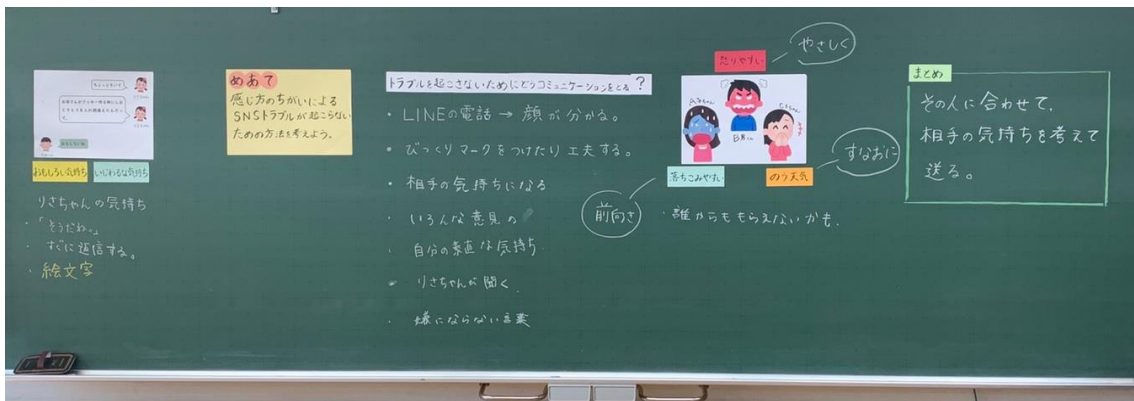 ちょっときいて
おもしろい気持ち
いじわるな気持ち
りさちゃんの気持ち
・「そうだね。」
・すぐに返信する。
・絵文字
めあて
感じ方のちがいによる
SNSトラブルが起こらない
ための方法を考えよう。
トラブルを起こさないためにどうコミュニケーションをとる?
・LINEの電話→顔が分かる。
・びっくりマークをつけたり工夫する。
・相手の気持ちになる
・いろんな意見の
・自分の素直な気持ち
・りさちゃんが聞く
・嫌にならない言葉
怒りやすい
やさしく
Aちゃん
B男くん
Cちゃん
落ちこみやすい
のう天気
前向き
すなおに
・誰からももらえないかも。
まとめ
その人に合わせて、
相手の気持ちを考えて
送る。